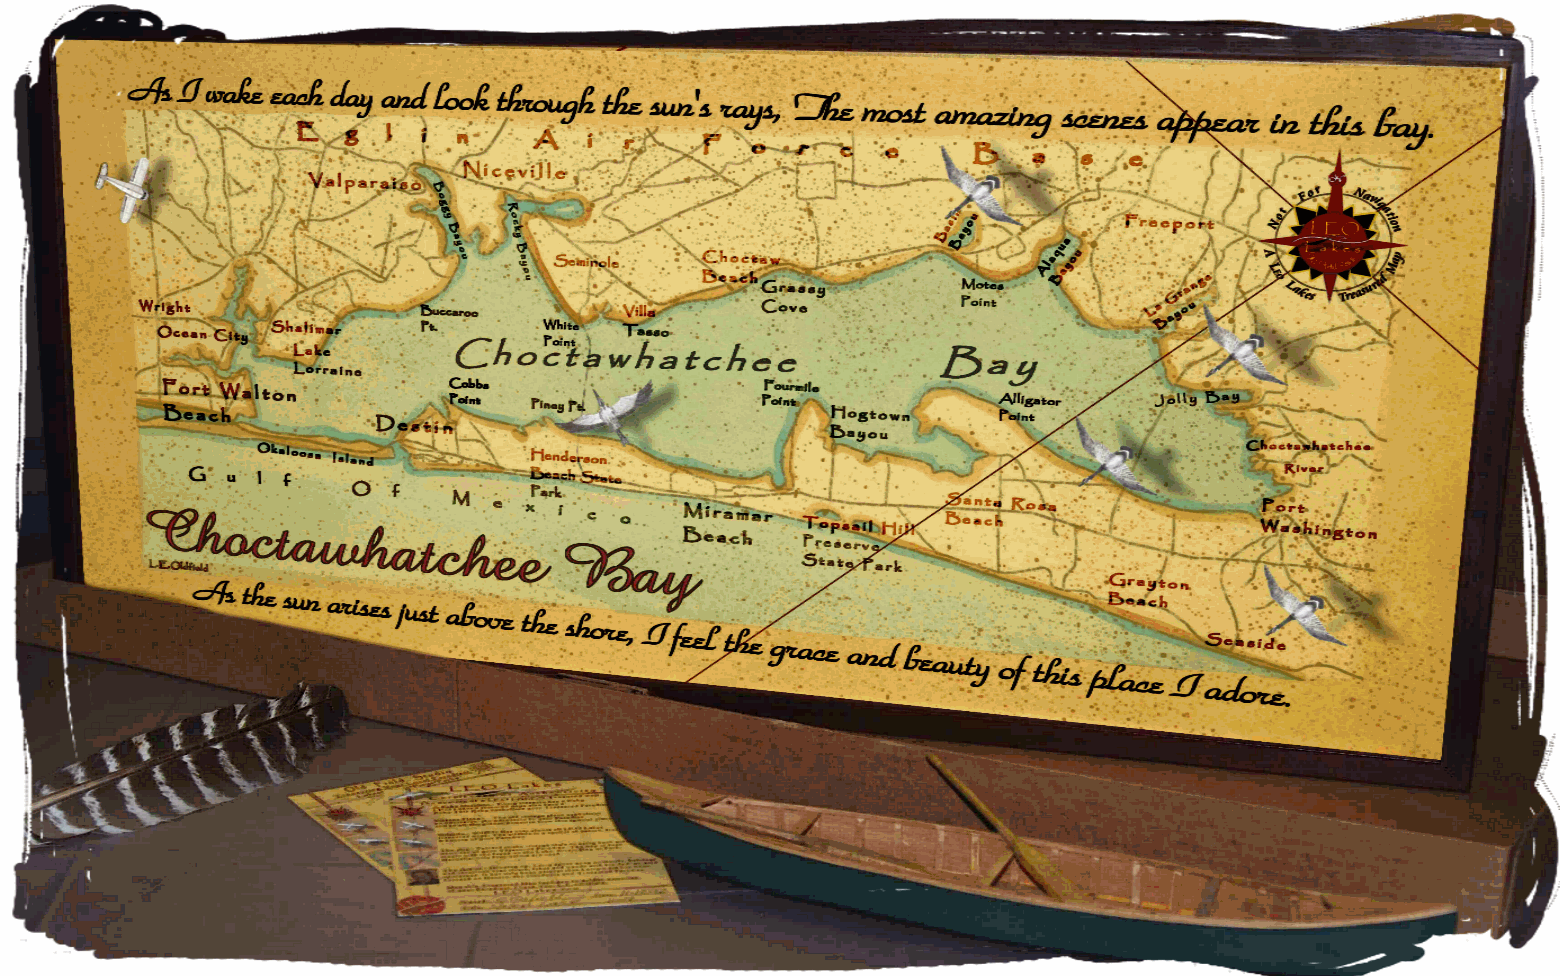 As I wake each day and look through the sun's rays, The most amazing scenes appear in this bay.
Eglin Air Force Base
Valparaiso
Niceville
Boggy Bayou
Rocky Bayou
Seminole
Choctaw
Beach
Grassy
Cove
Basin
Bayou
Motes
Point
Alaqua
Bayou
Freeport
Not For Navigation
LEO
A Leo Lakes Treasured Map
La Grange
Bayou
Wright
Ocean City
Shalimar
Lake
Lorraine
Buccaroo
Pt.
White
Point
Villa
Tasso
Choctawhatchee Bay
Fort Walton
Beach
Cobbs
Point
Piney Pt.
Fourmile
Point
Hogtown
Bayou
Alligator
Point
Jolly Bay
Destin
Okaloosa Island
Henderson
Beach State
Park
Choctawhatchee
River
Gulf Of Mexico
Miramar
Beach
Topsail Hill
Preserve
State Park
Santa Rosa
Beach
Port
Washington
Grayton
Beach
Seaside
Choctawhatchee Bay
L.E.Oldfield
As the sun arises just above the shore, I feel the grace and beauty of this place I adore.
LEO Lakes